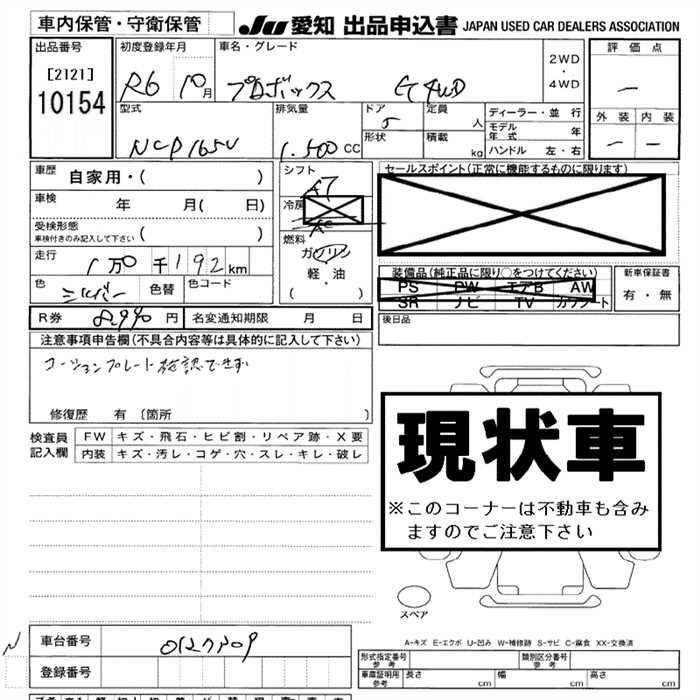 車内保管・守衛保管
JU 愛知 出品申込書 JAPAN USED CAR DEALERS ASSOCIATION
出品番号 [2121] 10154
初度登録年月 R6 10月
車名・グレード プロボックス G 4WD
2WD・4WD
評価点 ー
型式 NCP165V
排気量 1.500cc
ドア 5
形状
定員 人
積載 kg
ディーラー・並行
モデル年式 年
ハンドル 左・右
外装 ー 内装 ー
車歴 自家用・( )
車検 年 月( 日)
受検形態 車検付きのみ記入して下さい ( )
走行 1万0千192km
色 シルバー 色替 色コード
シフト AT
冷房 AC
燃料 ガソリン 軽・油 ( ・ )
セールスポイント(正常に機能するものに限ります)
装備品(純正品に限り○をつけてください)
PS PW エアB AW
SR ナビ TV カワシート
新車保証書 有・無
R券 円 名変通知期限 月 日
後日品
注意事項申告欄(不具合内容等は具体的に記入して下さい)
コーションプレート確認できず
修復歴 有 〔箇所 〕
検査員記入欄
FW キズ・飛石・ヒビ割・リペア跡・X要
内装 キズ・汚レ・コゲ・穴・スレ・キレ・破レ
現状車
※このコーナーは不動車も含み
ますのでご注意下さい
スペア
A-キズ E-エクボ U-凹み W-補修跡 S-サビ C-腐食 XX-交換済
N
車台番号 0127209
登録番号
形式指定番号 参考
類別区分番号 参考
車庫証明用 参考 長さ cm 幅 cm 高さ cm